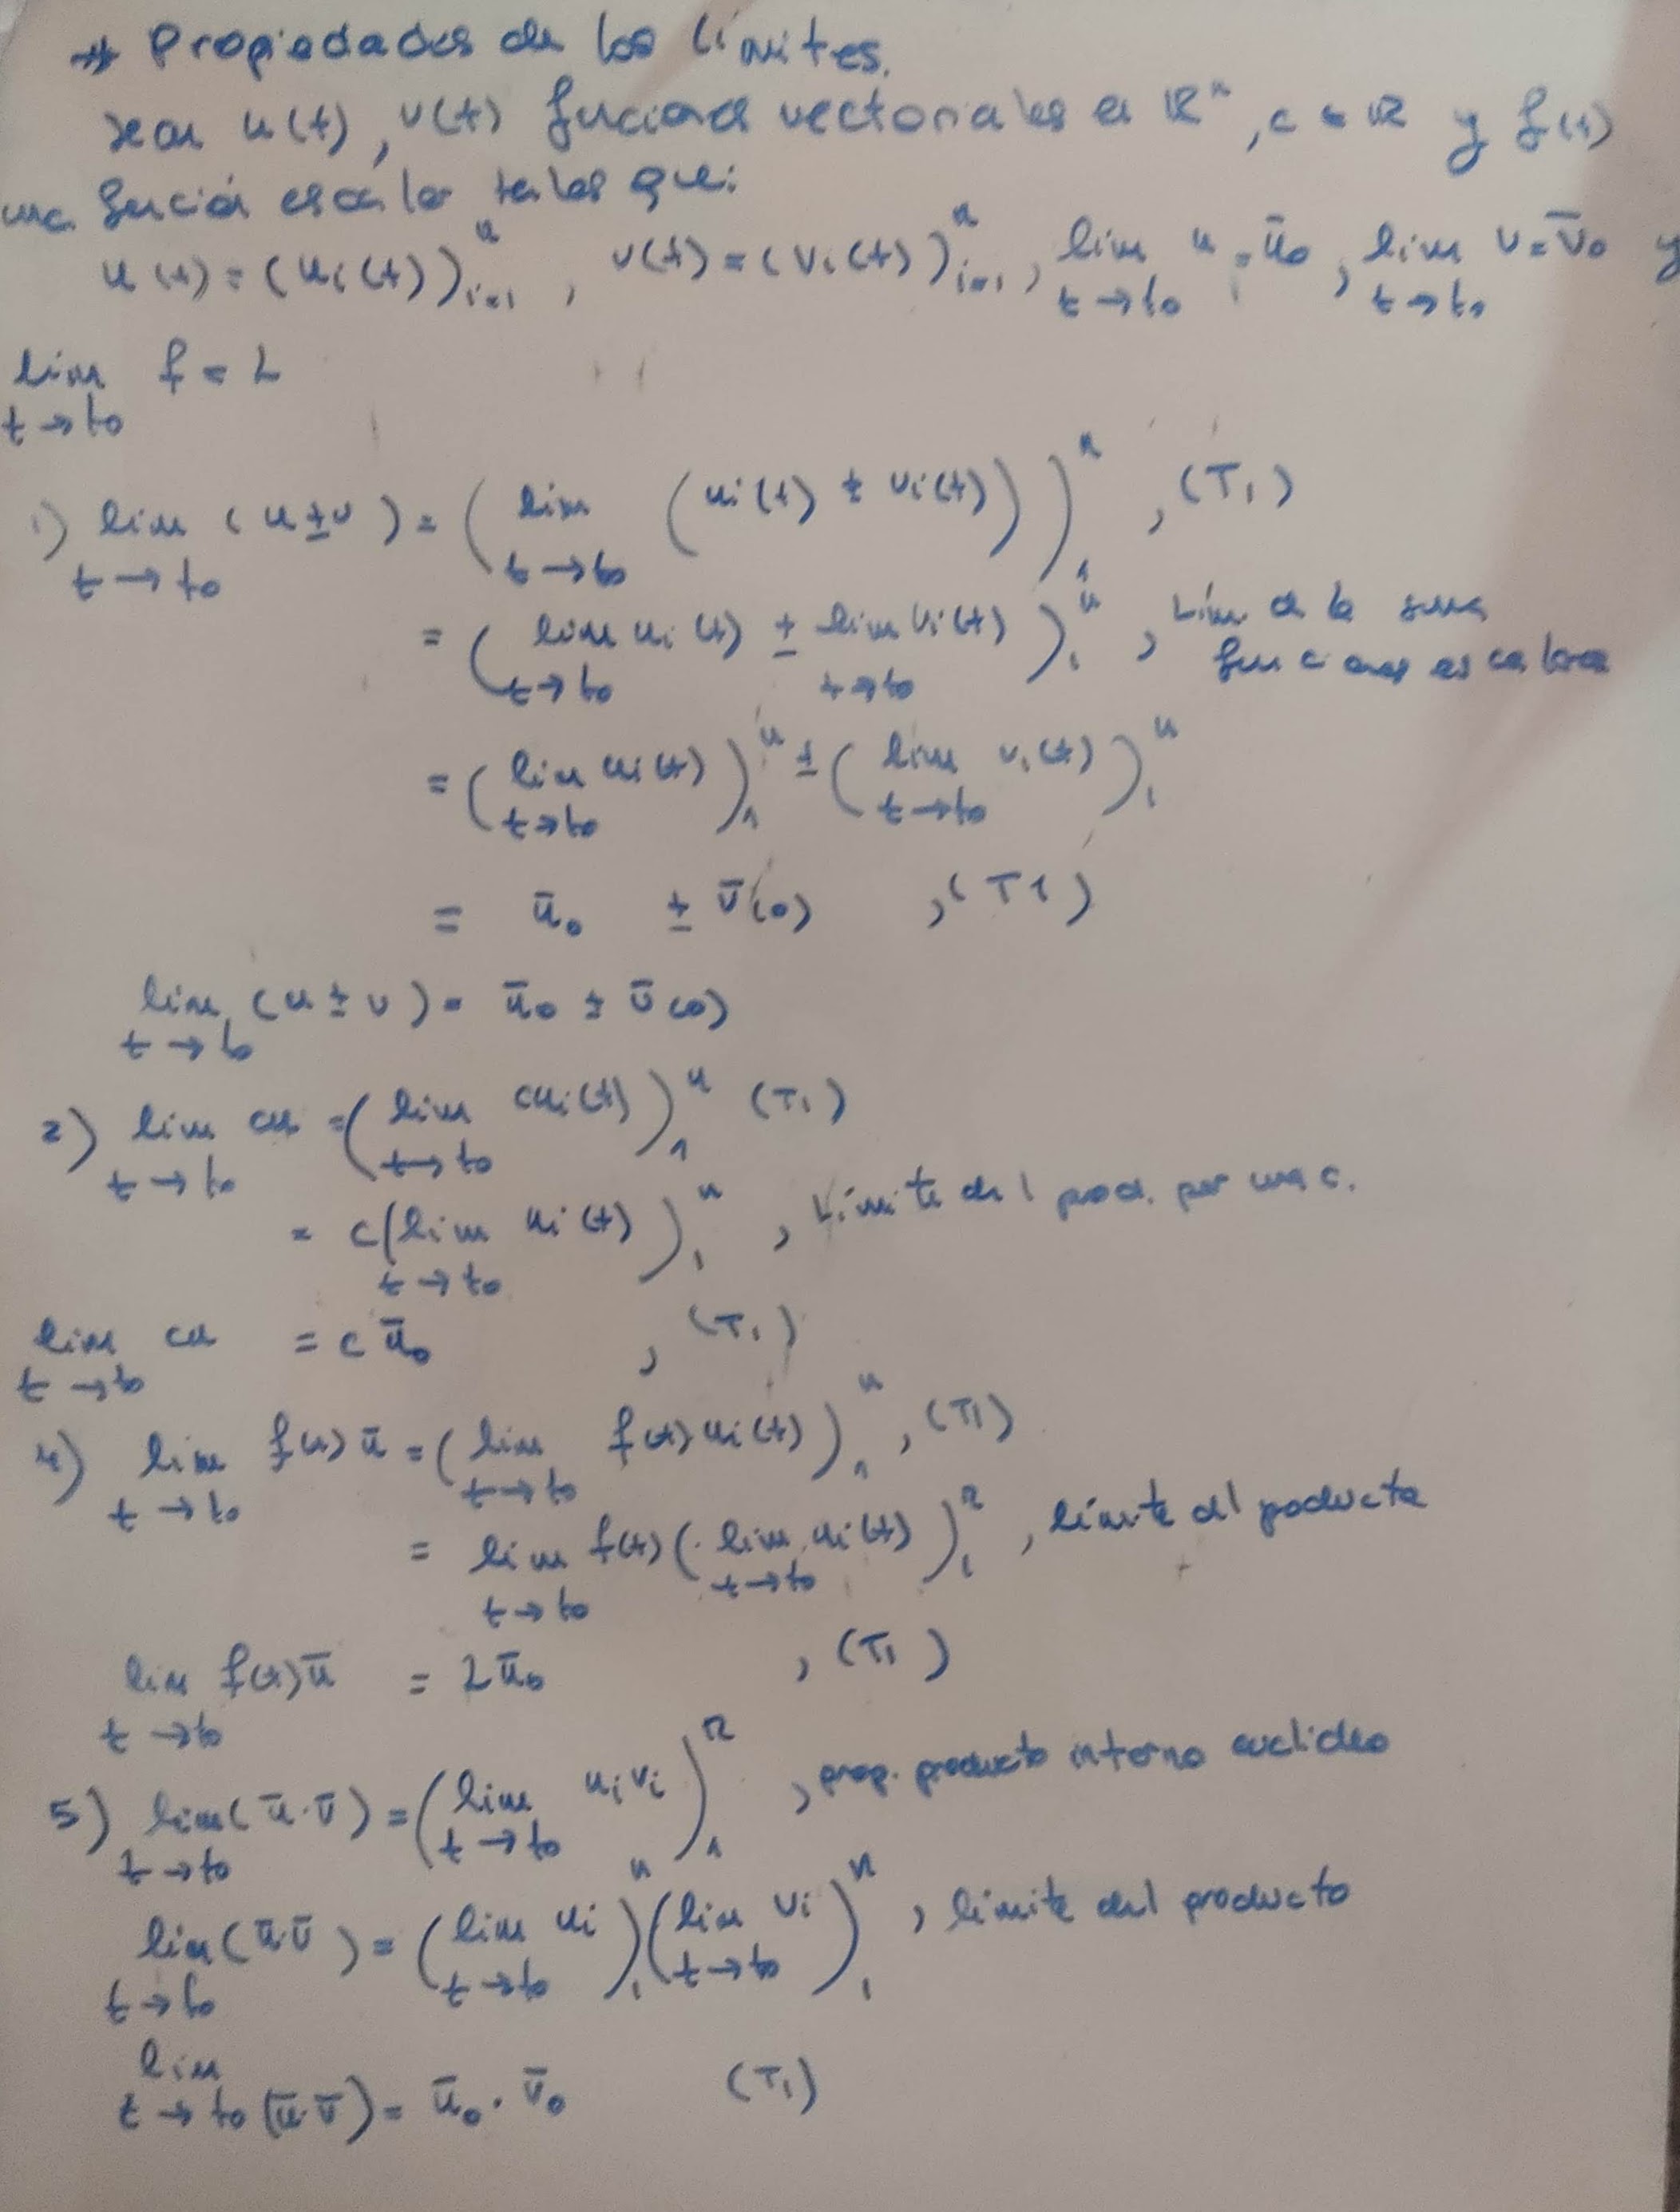 → Propiedades de los límites.
Sean u(t), v(t) funciones vectoriales en ℝⁿ, c ∈ ℝ y f(t)
una función escalar tales que:
u(t) = (uᵢ(t))ⁿᵢ₌₁ , v(t) = (vᵢ(t))ⁿᵢ₌₁ , lim t→t₀ u = ū₀ , lim t→t₀ v = v̄₀ y
lim t→t₀ f = L
1) lim t→t₀ (u ± v) = (lim t→t₀ (uᵢ(t) ± vᵢ(t)))ⁿ₁ , (T₁)
= (lim t→t₀ uᵢ(t) ± lim t→t₀ vᵢ(t))ⁿ₁ , Lím. d la suma
funciones escalares
= (lim t→t₀ uᵢ(t))ⁿ₁ ± (lim t→t₀ vᵢ(t))ⁿ₁
= ū₀ ± v̄(0) , (T1)
lim t→t₀ (u ± v) = ū₀ ± v̄(0)
2) lim t→t₀ cu = (lim t→t₀ cuᵢ(t))ⁿ₁ (T₁)
= c(lim t→t₀ uᵢ(t))ⁿ₁ , Límite del prod. por una c.
lim t→t₀ cu = c ū₀ , (T₁)
4) lim t→t₀ f(t) ū = (lim t→t₀ f(t) uᵢ(t))ⁿ₁ , (T1)
= lim t→t₀ f(t) (lim t→t₀ uᵢ(t))ⁿ₁ , límite del producto
lim t→t₀ f(t) ū = L ū₀ , (T₁)
5) lim t→t₀ (ū·v̄) = (lim t→t₀ uᵢvᵢ)ⁿ₁ , prop. producto interno euclideo
lim t→t₀ (ū·v̄) = (lim t→t₀ uᵢ)ⁿ₁ (lim t→t₀ vᵢ)ⁿ₁ , límite del producto
lim t→t₀ (ū·v̄) = ū₀ · v̄₀ (T₁)